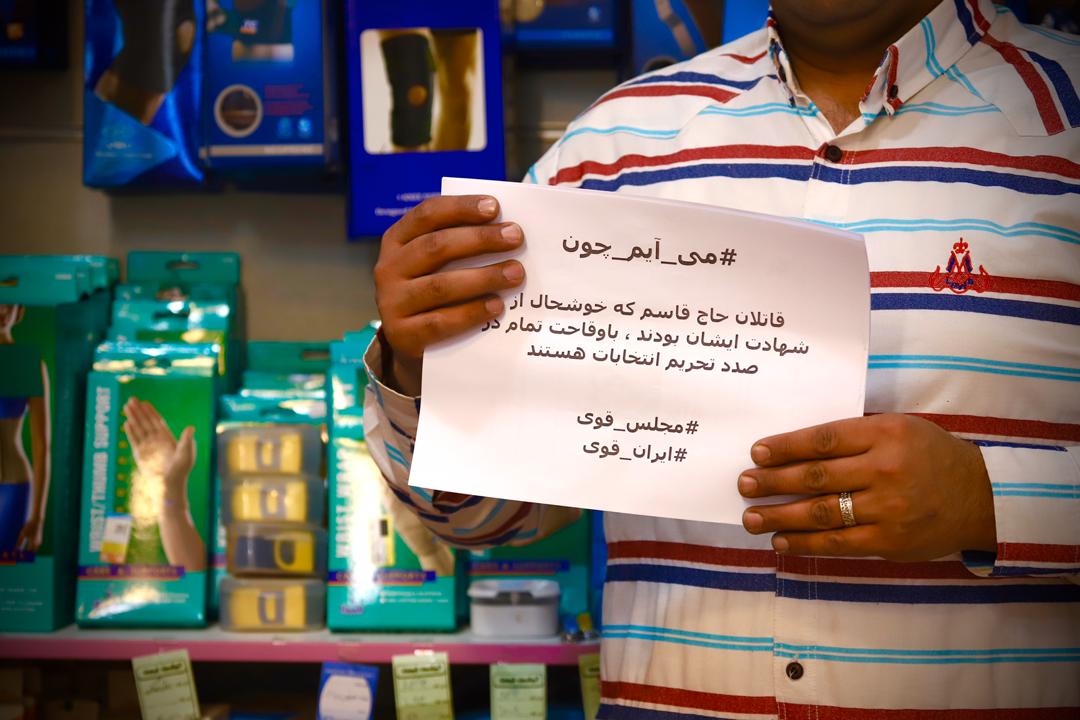 #می_آیم_چون
قاتلان حاج قاسم که خوشحال از
شهادت ایشان بودند ، باوقاحت تمام در
صدد تحریم انتخابات هستند
#مجلس_قوی
#ایران_قوی
WRIST/THUMB SUPPORT
CARE & SUPPORTS